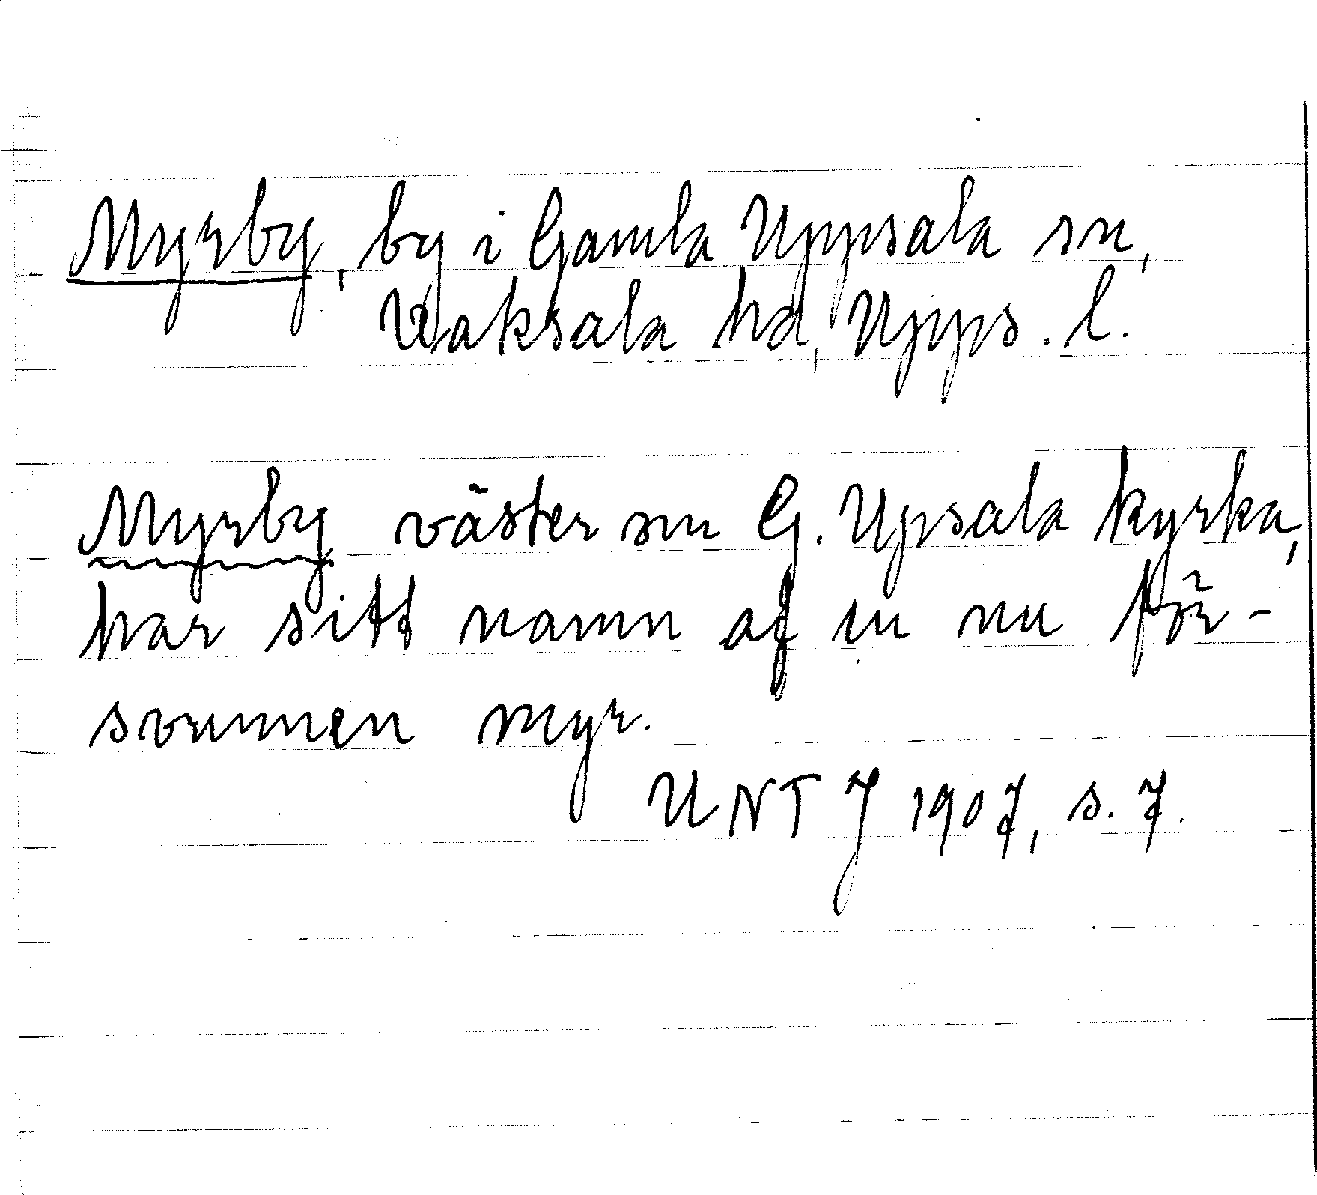 Myrby, by i Gamla Uppsala sn,
Vaksala hd, Upps. l.
Myrby väster om G. Upsala kyrka,
har sitt namn af en nu för-
svunnen myr.
UNT J 1907, s. 7.